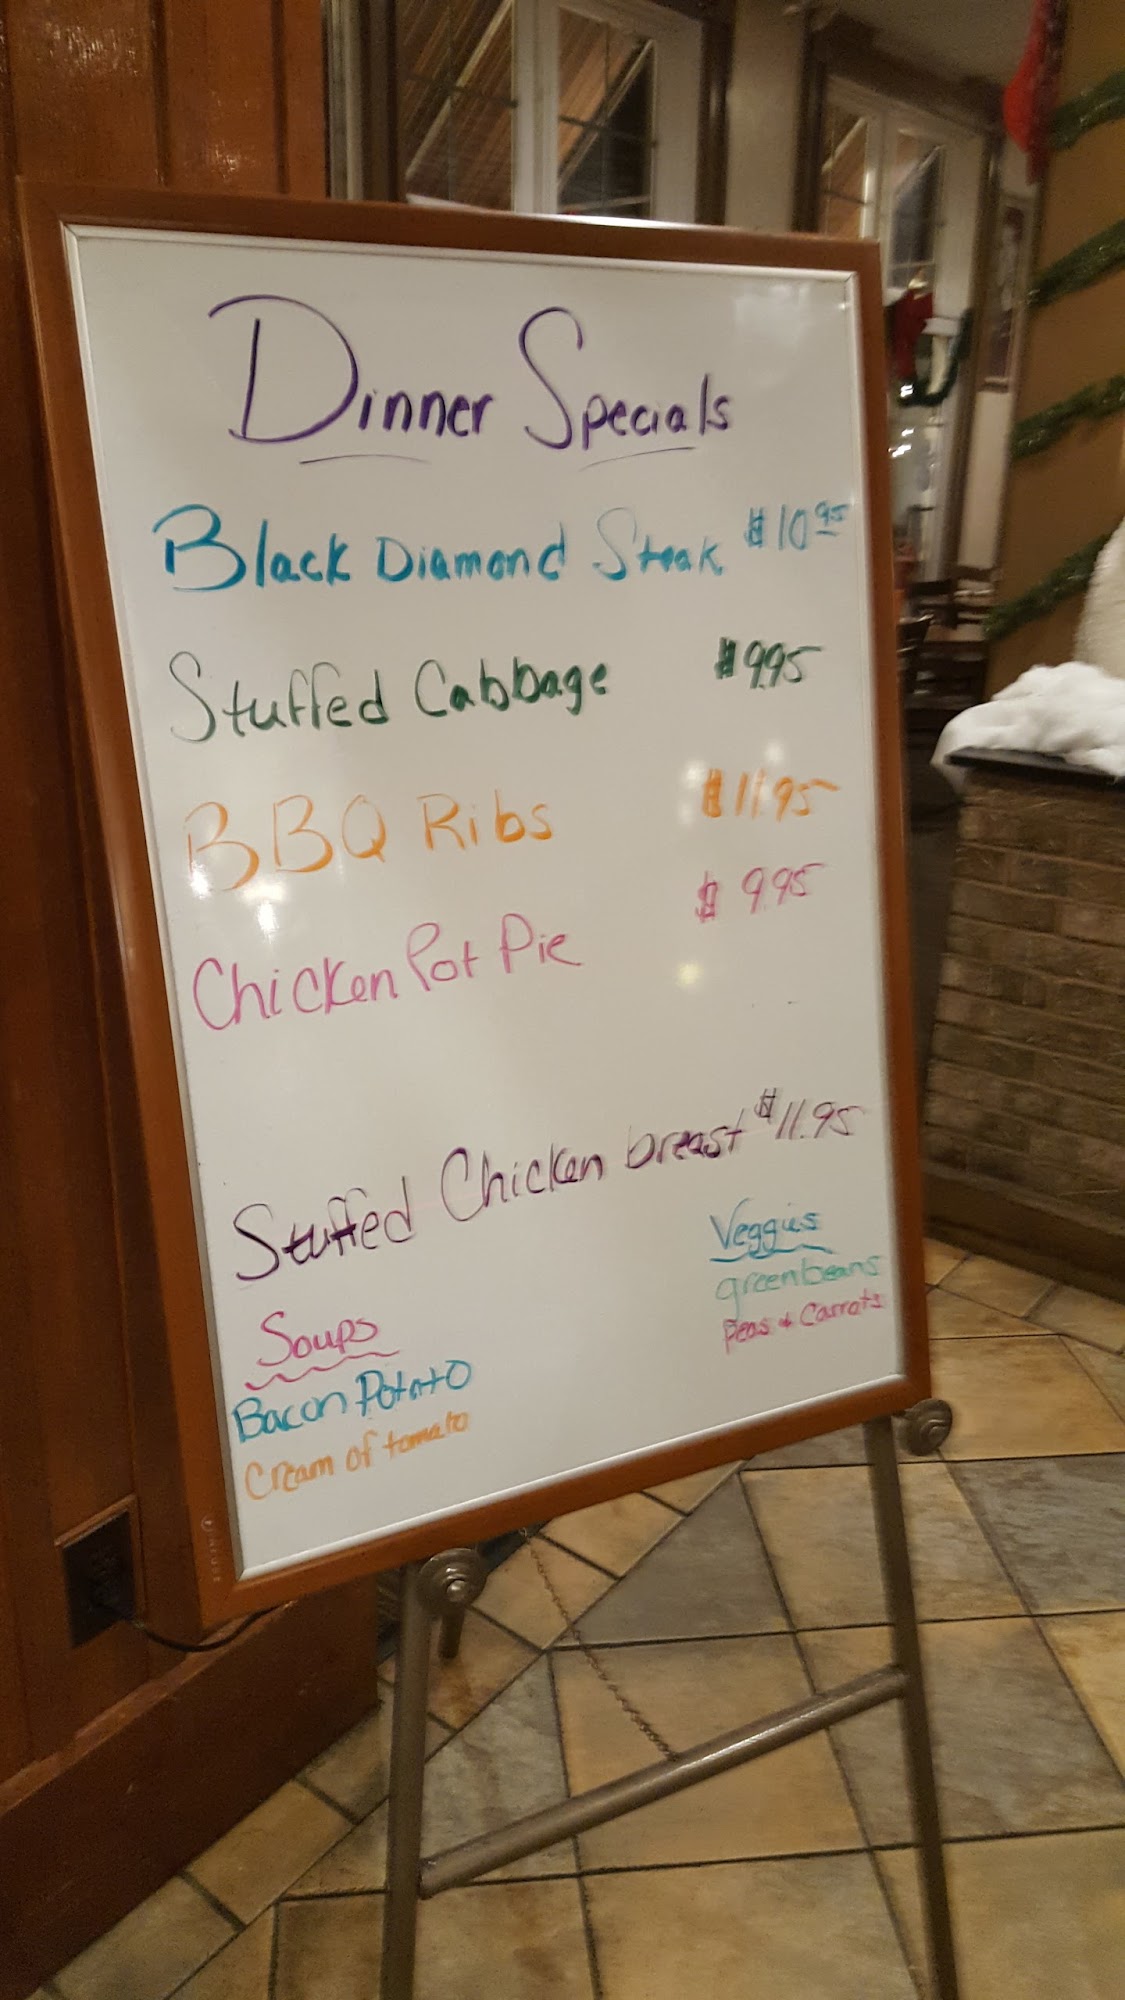 Dinner Specials
Black Diamond Steak $10.95
Stuffed Cabbage $9.95
BBQ Ribs $11.95
Chicken Pot Pie $9.95
Stuffed Chicken breast $11.95
Soups
Bacon Potato
Cream of tomato
Veggies
greenbeans
Peas + Carrots